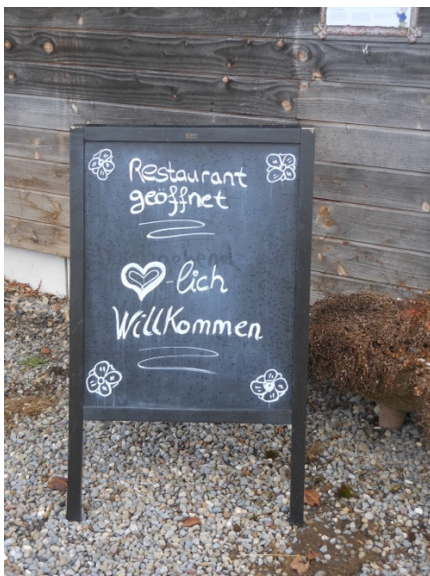 Restaurant
geöffnet
♥-lich
Willkommen